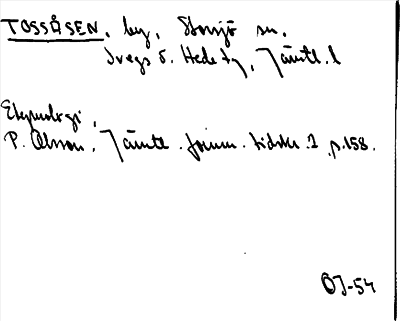 TOSSÅSEN, by, Storsjö sn,
Svegs o. Hede tg, Jämtl. l
Etymologi,
P. Olsson, Jämtl. fornm. tidskr. 1 p. 158.
OJ-54